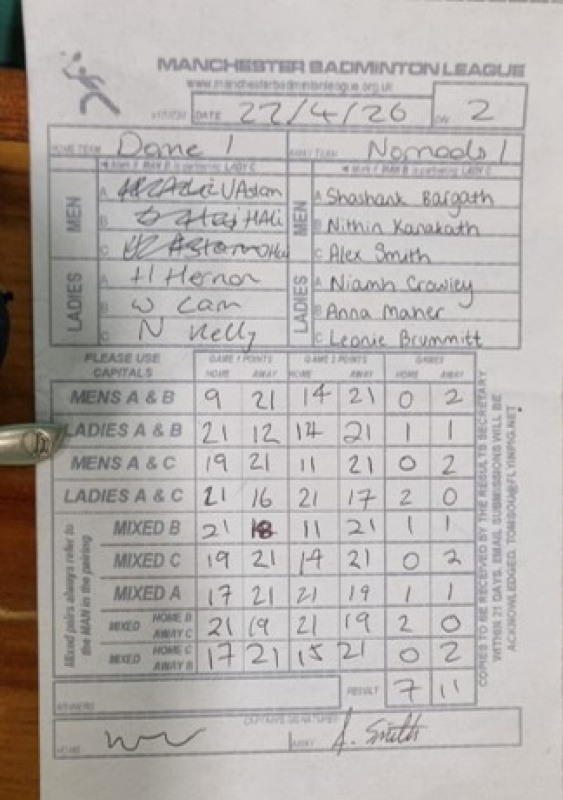 MANCHESTER BADMINTON LEAGUE
www.manchesterbadmintonleague.org.uk
DATE 22/4/26 DIV 2
HOME TEAM Dome 1 AWAY TEAM Nomads 1
MEN A U Aslam MEN A Shashank Bargath
B H Ali B Nithin Kanakath
C C Alex Smith
LADIES A H Hernon LADIES A Niamh Crowley
B W Lam B Anna Maher
C N Kelly C Leonie Brummitt
PLEASE USE CAPITALS GAME 1 POINTS GAME 2 POINTS GAMES
HOME AWAY HOME AWAY HOME AWAY
MENS A & B 9 21 14 21 0 2
LADIES A & B 21 12 14 21 1 1
MENS A & C 19 21 11 21 0 2
LADIES A & C 21 16 21 17 2 0
MIXED B 21 18 11 21 1 1
MIXED C 19 21 14 21 0 2
MIXED A 17 21 21 19 1 1
MIXED HOME B AWAY C 21 19 21 19 2 0
MIXED HOME C AWAY B 17 21 15 21 0 2
Mixed pairs always refer to the MAN in the pairing
WINNERS RESULT 7 11
CAPTAINS SIGNATURES
HOME AWAY A. Smith
COPIES TO BE RECEIVED BY THE RESULTS SECRETARY
WITHIN 21 DAYS. EMAIL SUBMISSIONS WILL BE